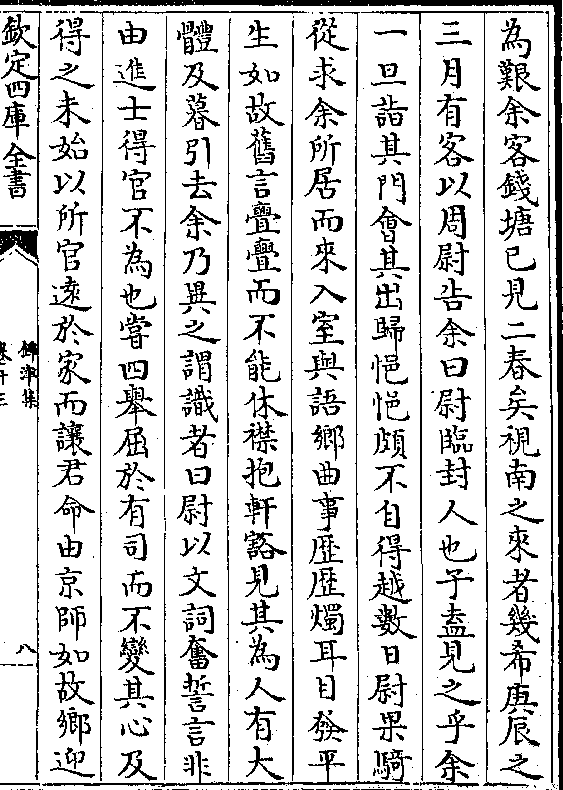 為艱余客錢塘已見二春矣視南之來者幾希庚辰之
三月有客以周尉告余曰尉臨封人也子盍見之乎余
一旦詣其門會其出歸悒悒頗不自得越數日尉果騎
從求余所居而來入室與語鄉曲事歷歷燭耳目發平
生如故舊言亹亹而不能休襟抱軒豁見其為人有大
體及暮引去余乃異之謂識者曰尉以文詞奮誓言非
由進士得官不為也嘗四舉屈於有司而不變其心及
得之未始以所官遠於家而讓君命由京師如故鄉迎
欽定四庫全書
鐔津集
卷十三
八